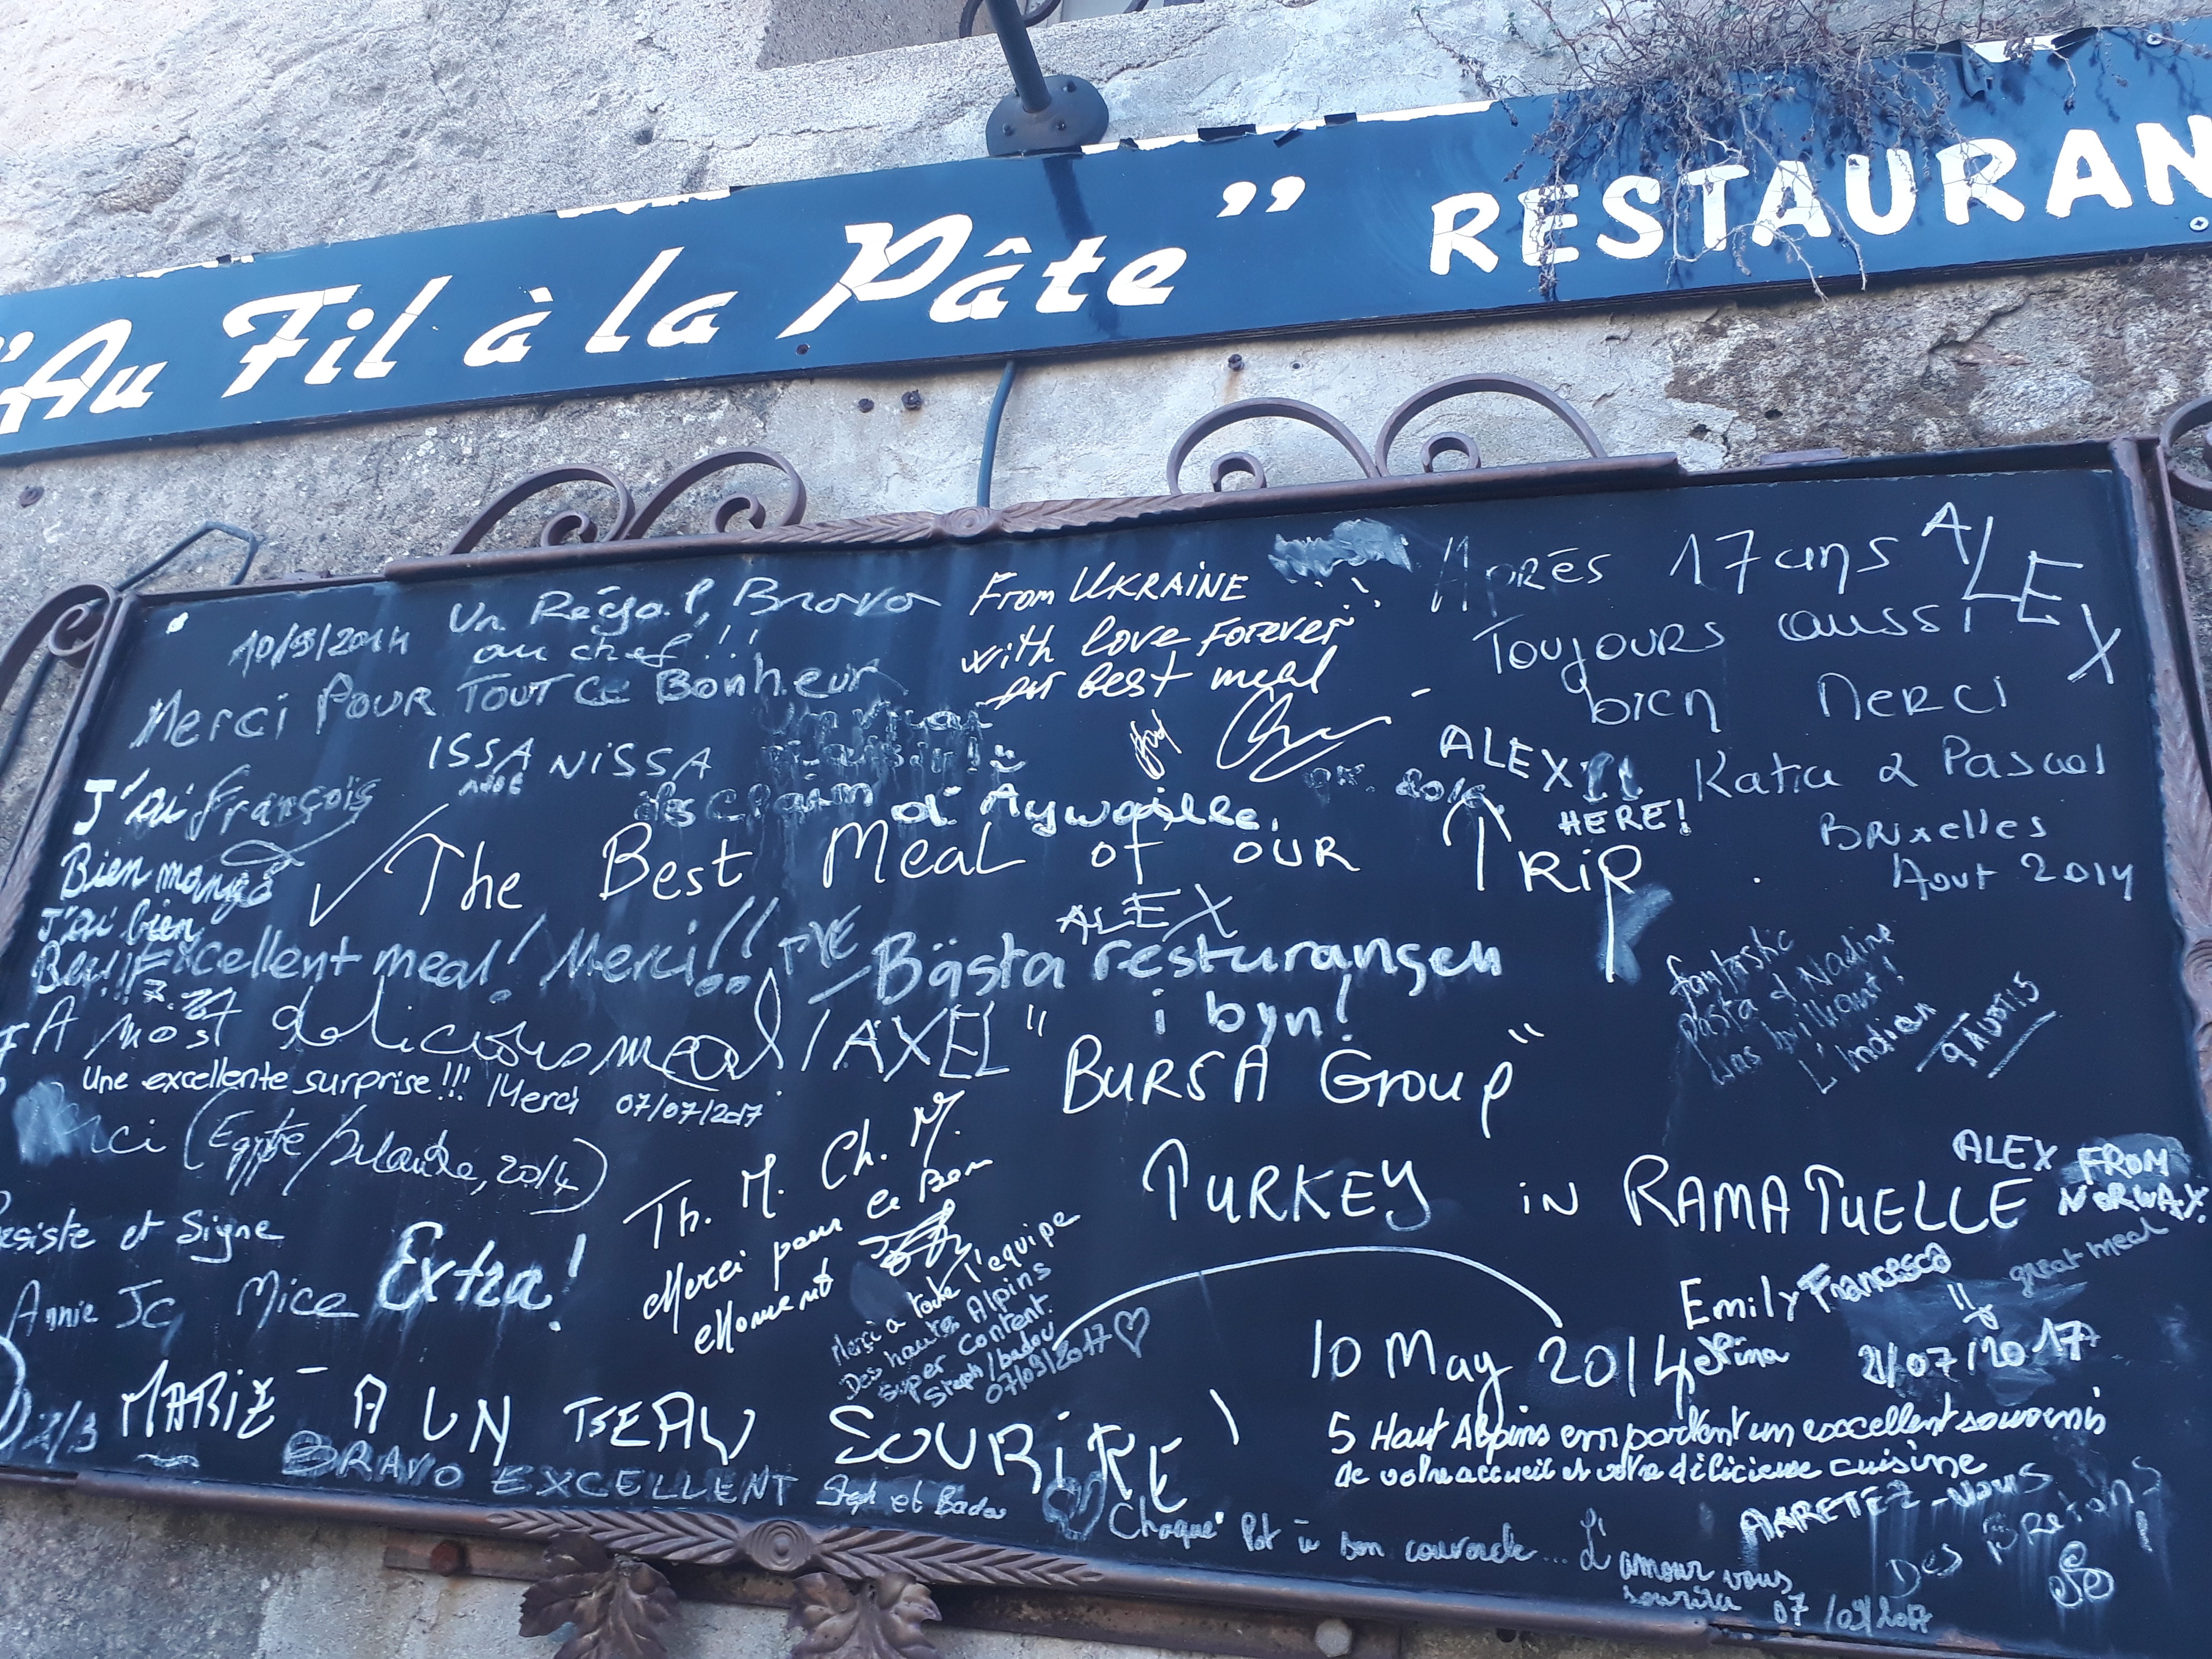 "Au Fil à la Pâte" RESTAURAN
10/09/2014
Un Régal, Bravo
au chef!!!
Merci POUR TOUT CE BonhEUR
ISSA NISSA
From UKRAINE
with love Forever
best meal
Après 17 ans
Toujours aussi
bien Merci
ALEX
Katia & Pascal
Bruxelles
Aout 2014
ALEX
HERE!
J'ai François
Bien mangé
J'ai bien
Bu!!!
d'Aywaille
The Best Meal of our TRIP
Excellent meal! Merci!!
ALEX
Bästa resturangen
i byn!
A most delicious meal! AXEL
"BURSA Group"
TURKEY in RAMATUELLE
10 May 2014
fantastic
Pasta & Nadine
was brilliant!
L'Indien
Une excellente surprise!!! Merci 07/07/2017
(Egypte/Irlande, 2014)
esiste et Signe
Annie Jc, Mice
Extra!
Th. M. Ch. M.
Merci pour ce Bon
Moment
Merci a toute l'equipe
Des hautes Alpins
Super Content.
Steph/badou
07/09/2017
ALEX FROM
NORWAY.
great meal
Emily Francesca
Nina
21/07/2017
MARIE A UN BEAU SOURIRE
BRAVO EXCELLENT
Steph et Badou
5 Haut Alpins emportent un excellent souvenis
de votre accueil et votre délicieuse cuisine
Chaque Pot à son couvercle... L'amour vous
sourira 07/09/2017
ARRETEZ-VOUS
Des Bretons